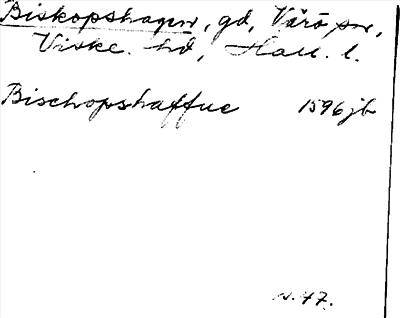 Biskopshagen, gd, Värö sn,
Viske. hd, Hall. l.
Bischopshaffue 1596 jb
n. 47.